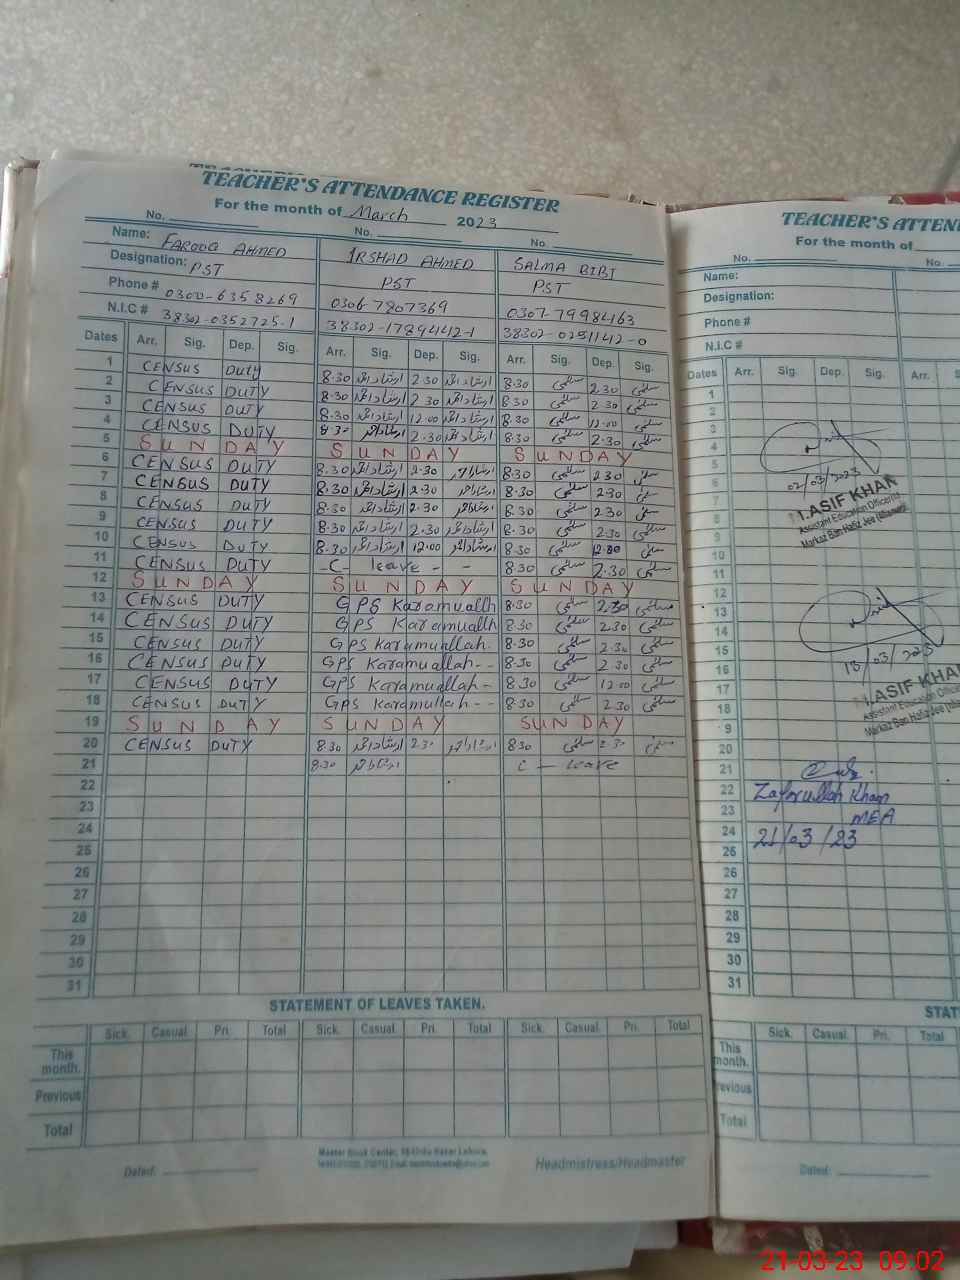 TEACHER'S ATTENDANCE REGISTER
For the month of March 2023
No. No. No.
Name: FAROOQ AHMED IRSHAD AHMED SALMA BIBI
Designation: PST PST PST
Phone # 0300-6358269 0306-7807369 0307-7998463
N.I.C # 38302-0352725-1 38302-1789442-1 38302-0251142-0
Dates Arr. Sig. Dep. Sig. Arr. Sig. Dep. Sig. Arr. Sig. Dep. Sig.
1 CENSUS Duty 8.30 ارشاد احمد 2.30 ارشاد احمد 8.30 سلمی 2.30 سلمی
2 CENSUS DUTY 8.30 ارشاد احمد 2.30 ارشاد احمد 8.30 سلمی 2.30 سلمی
3 CENSUS DUTY 8.30 ارشاد احمد 12.00 ارشاد احمد 8.30 سلمی 12.00 سلمی
4 CENSUS DUTY 8.30 ارشاد احمد 2.30 ارشاد احمد 8.30 سلمی 2.30 سلمی
5 SUNDAY SUNDAY SUNDAY
6 CENSUS DUTY 8.30 ارشاد احمد 2.30 ارشاد احمد 8.30 سلمی 2.30 سلمی
7 CENSUS DUTY 8.30 ارشاد احمد 2.30 ارشاد احمد 8.30 سلمی 2.30 سلمی
8 CENSUS DUTY 8.30 ارشاد احمد 2.30 ارشاد احمد 8.30 سلمی 2.30 سلمی
9 CENSUS DUTY 8.30 ارشاد احمد 2.30 ارشاد احمد 8.30 سلمی 2.30 سلمی
10 CENSUS DUTY 8.30 ارشاد احمد 12.00 ارشاد احمد 8.30 سلمی 12.00 سلمی
11 CENSUS DUTY -C- leave - - 8.30 سلمی 2.30 سلمی
12 SUNDAY SUNDAY SUNDAY
13 CENSUS DUTY GPS Karamuallh 8.30 سلمی 2.30 سلمی
14 CENSUS DUTY GPS Karamuallh 8.30 سلمی 2.30 سلمی
15 CENSUS DUTY GPS Karamuallah. 8.30 سلمی 2.30 سلمی
16 CENSUS DUTY GPS Karamuallah-- 8.30 سلمی 2.30 سلمی
17 CENSUS DUTY GPS Karamuallah- 8.30 سلمی 12.00 سلمی
18 CENSUS DUTY GPS Karamullah-- 8.30 سلمی 2.30 سلمی
19 SUNDAY SUNDAY SUNDAY
20 CENSUS DUTY 8.30 ارشاد احمد 2.30 ارشاد احمد 8.30 سلمی 2.30 سلمی
21 8.30 ارشاد احمد C - leave
22
23
24
25
26
27
28
29
30
31
STATEMENT OF LEAVES TAKEN.
Sick. Casual. Pri. Total Sick. Casual. Pri. Total Sick. Casual. Pri. Total
This month.
Previous
Total
Master Book Center, Urdu Bazar Lahore.
Dated: Headmistress/Headmaster
TEACHER'S ATTEN
For the month of
No. No.
Name:
Designation:
Phone #
N.I.C #
Dates Arr. Sig. Dep. Sig. Arr.
1
2
3
4
5
6
02/03/2023
7
M.ASIF KHAN
8
Assistant Education Officer
9
Markaz Ban Hafiz Jee
10
11
12
13
14
15
16
13/03/2023
17
ASIF KHA
18
Assistant Education Office
9
Markaz Ban Hafiz Jee
20
21
22 Zafarullah Khan
23 MEA
24 21/03/23
25
26
27
28
29
30
31
STAT
Sick. Casual. Pri. Total
This month.
revious
Total
Dated:
21-03-23 09.02